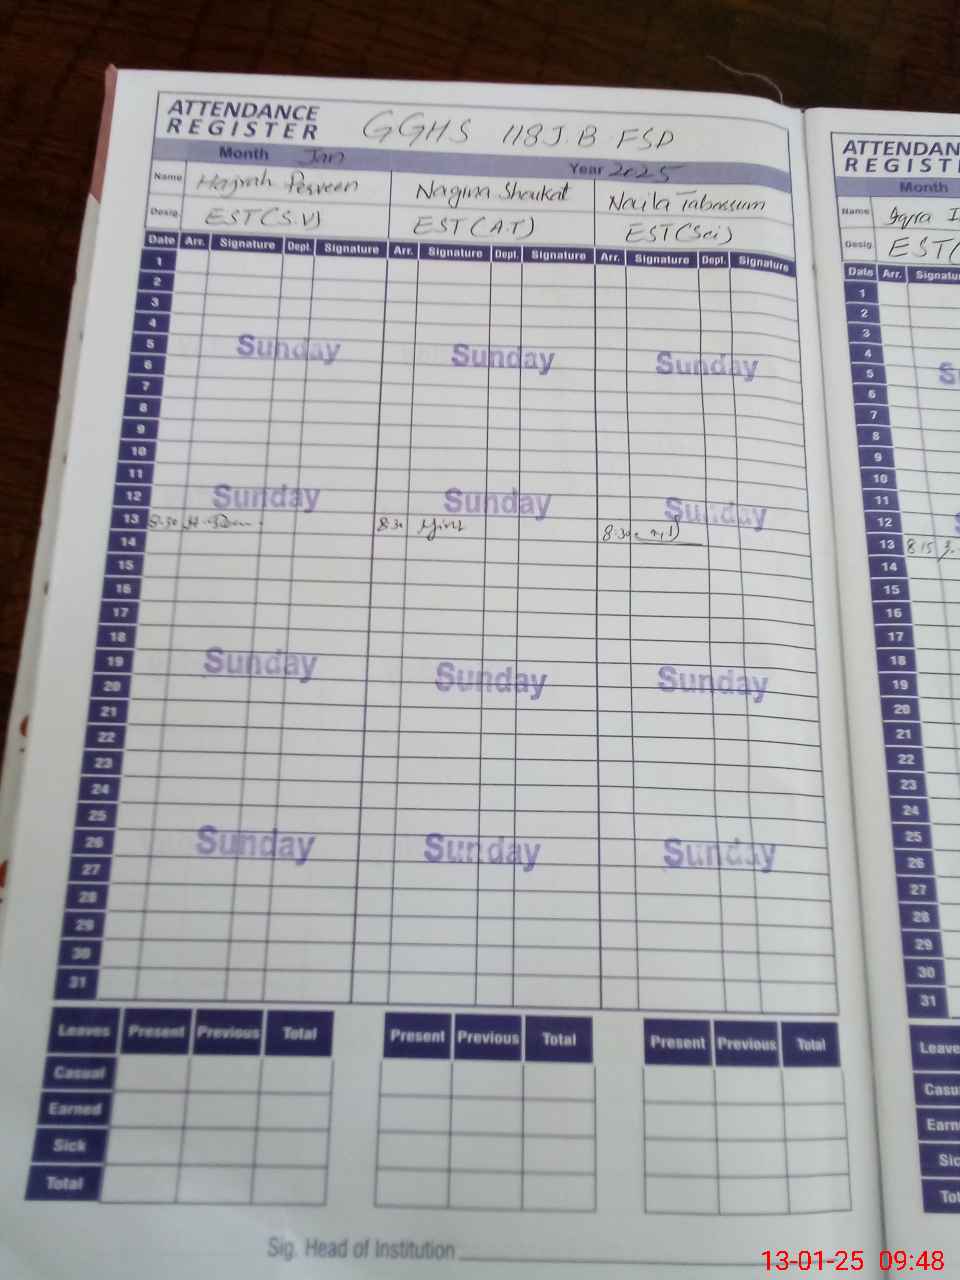 ATTENDANCE REGISTER GGHS 118 J.B. FSD
Month Jan Year 2025
Name Hajrah Perveen Nagina Shaukat Naila Tabassum
Desig. EST(S.V) EST(A.T) EST(Sci)
Date Arr. Signature Dept. Signature Arr. Signature Dept. Signature Arr. Signature Dept. Signature
1
2
3
4
5 Sunday Sunday Sunday
6
7
8
9
10
11
12 Sunday Sunday Sunday
13 8:30 8:30 8:30
14
15
16
17
18
19 Sunday Sunday Sunday
20
21
22
23
24
25
26 Sunday Sunday Sunday
27
28
29
30
31
Leaves Present Previous Total Present Previous Total Present Previous Total
Casual
Earned
Sick
Total
Sig. Head of Institution
ATTENDAN
REGIST
Month
Name Iqra I
Desig EST(
Date Arr. Signatu
1
2
3
4
5 S
6
7
8
9
10
11
12 S
13 8:15
14
15
16
17
18
19
20
21
22
23
24
25
26
27
28
29
30
31
Leave
Casu
Earn
Sic
Tot
13-01-25 09:48